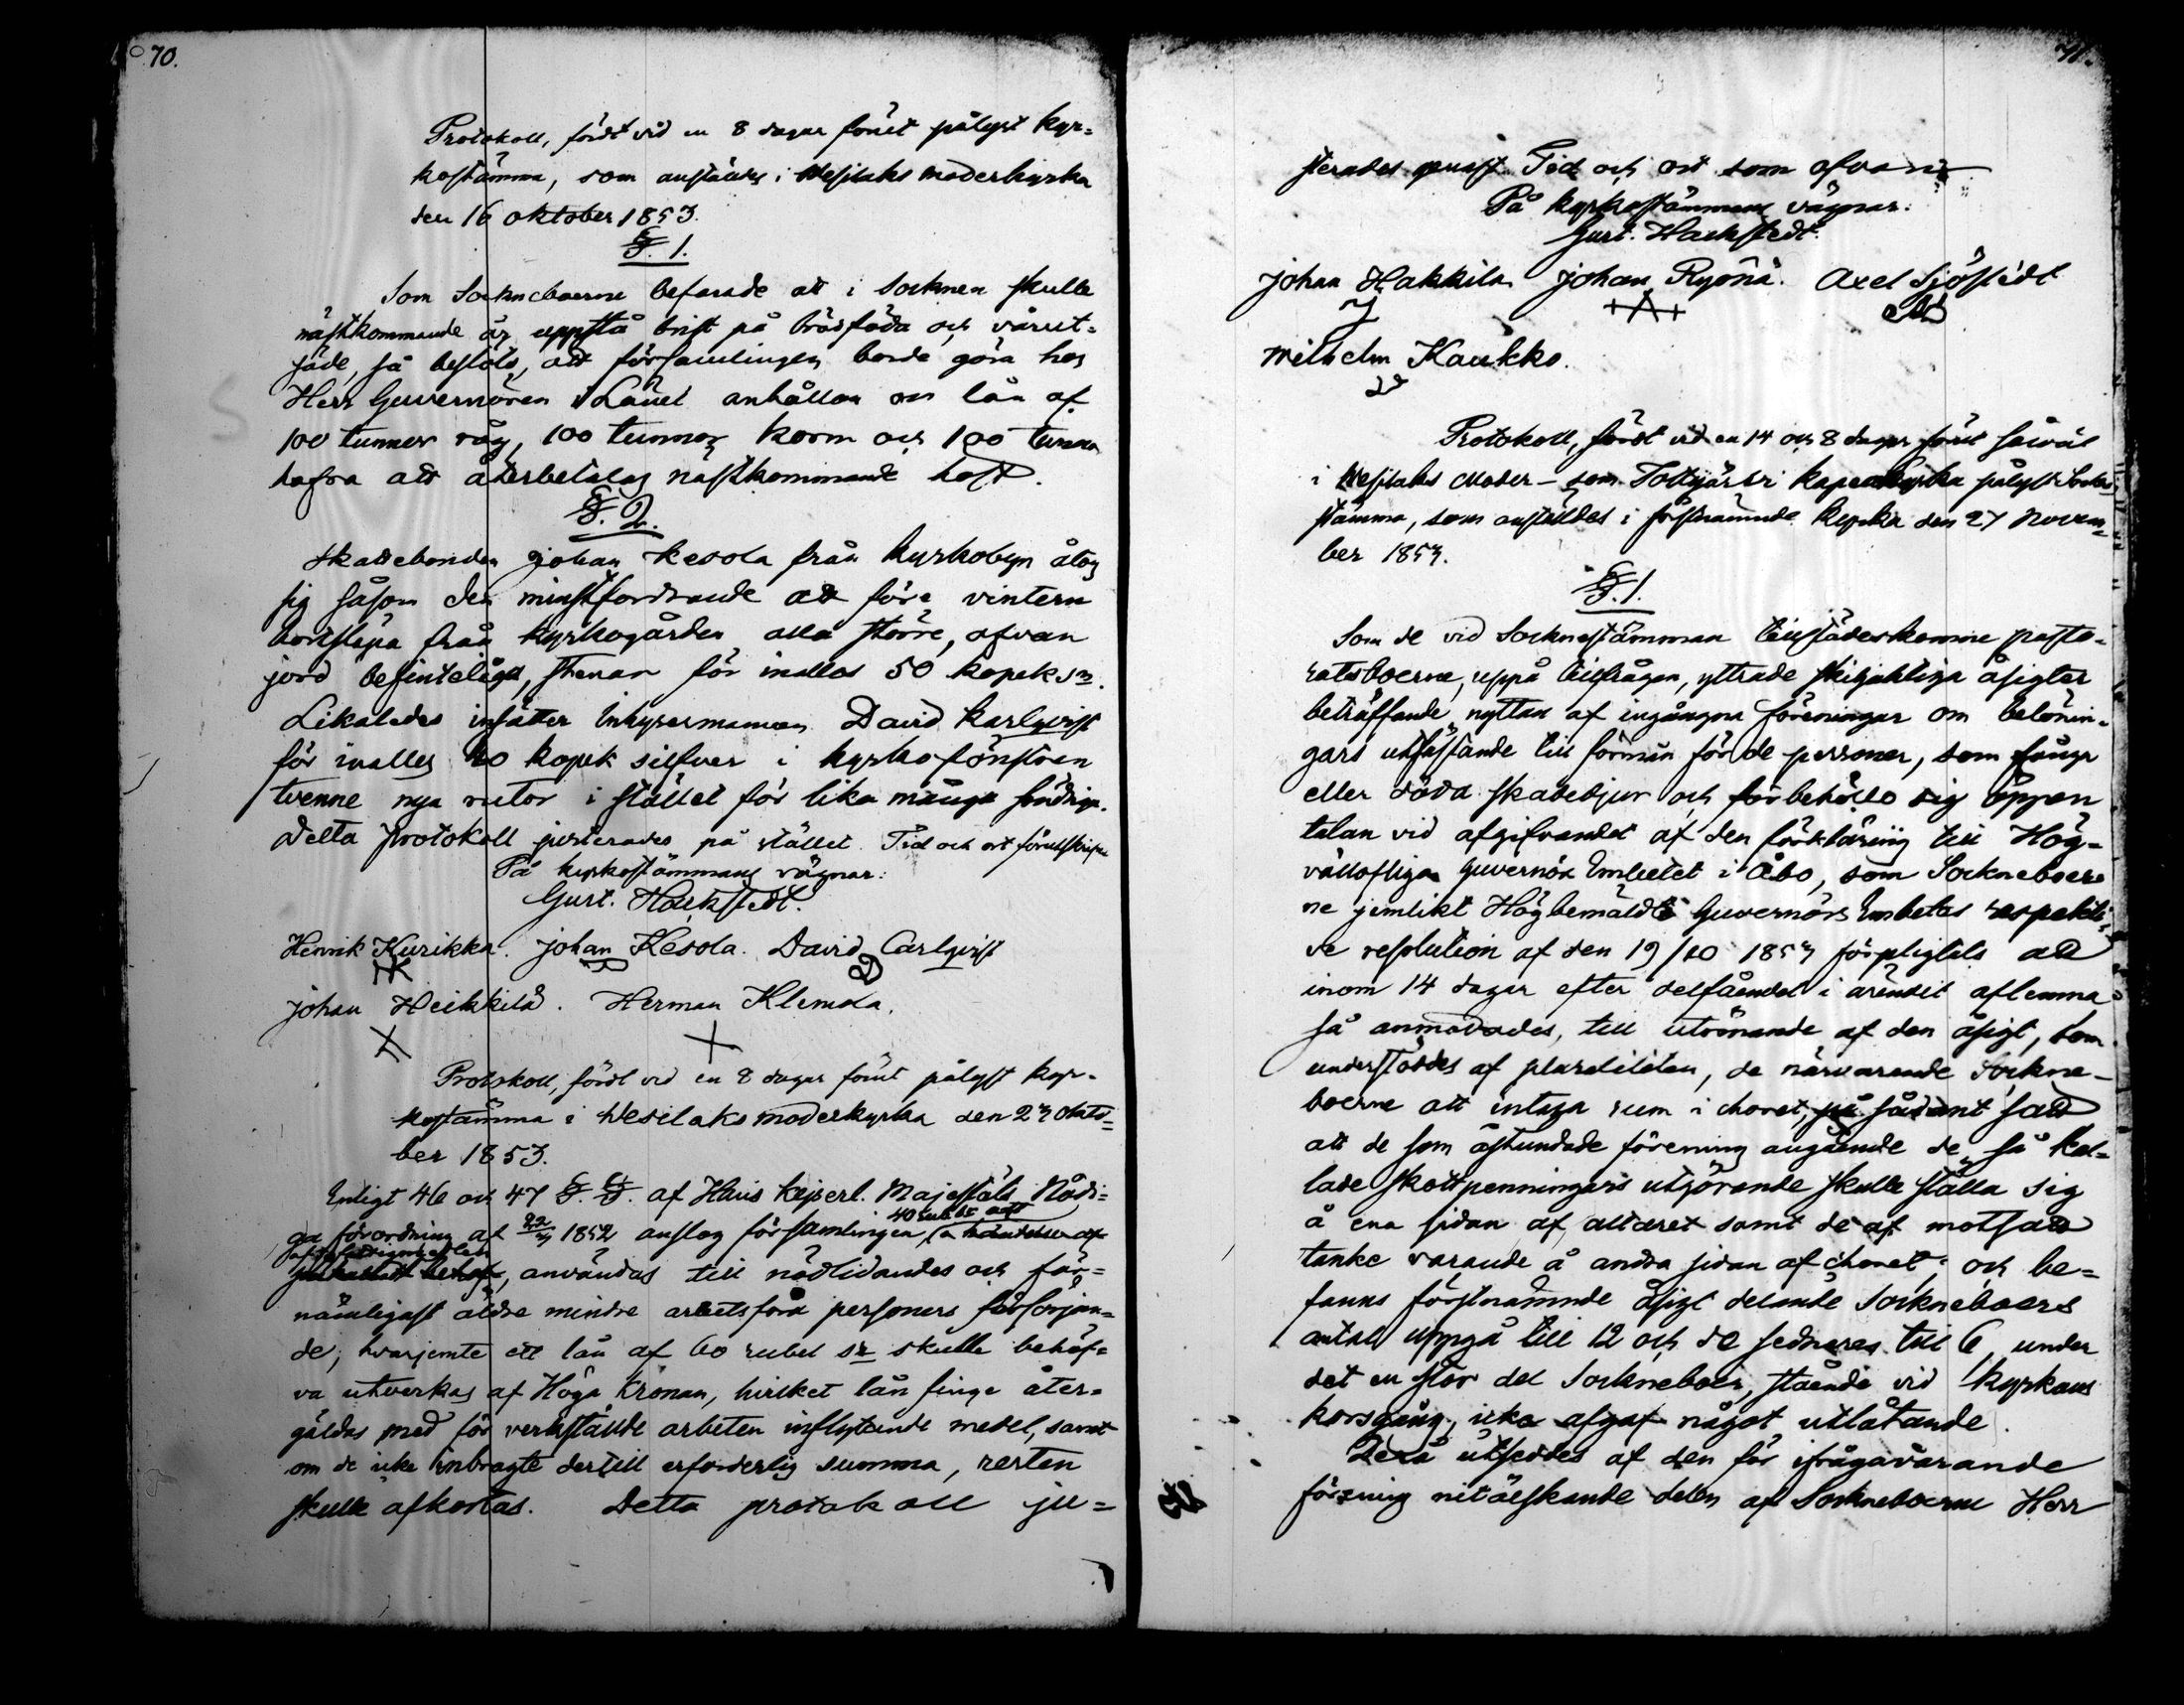 70.
Protokoll, fördt vid en 8 dagar förut pålyst kyr=
kostämma, som anställdes i Wesilaks moderkyrka
den 16 oktober 1853.
§. 1.
Som Sockneboerne befarade att i Socknen skulle
nästkommande år uppstå brist på brödföda och vårut=
säde, så beslöts, att församlingen borde göra hos
Herr Guvernören i Länet anhållan om lån af
100 tunnor råg, 100 tunnor korn och 100 tunnor
hafra att återbetalas nästkommande höst.
§. 2.
Skattebonden Johan Kesola från kyrkobyn åtog
sig såsom den minstfordrande att före vintern
bortsläpa från kyrkogården alla större, ofvan
jord befinteliga, stenar för inalles 50 kopek sm.
Likaledes insätter Inhysesmannen David Karlqvist
för inalles 40 kopek silfver i kyrkofönstren
tvenne nya rutor i stället för lika många söndriga.
Detta protokoll justerades på stället. Tid och ort förutskrifne
På kyrkostämmans vägnar:
Gust. Hackstedt.
Henrik Kurikka. Johan Kesola. David Carlqvist
Johan Heikkilä. Herman Klemola.
Protokoll, fördt vid en 8 dagar förut pålyst kyr=
kostämma i Wesilaks moderkyrka den 23 Okto=
ber 1853.
Enligt 46 och 47 §. §. af Hans Kejserl. Majestäts Nådi=
40 rub. sr att
ga förordning af 22 1852 anslog församlingen, i händelse af
af fattigmedlen
behof, användas till nödlidandes och för=
nämligast äldre mindre arbetsföra personers försörjan=
de, hvarjemte ett lån af 60 rubel sr skulle behöf=
va utverkas af Höga Kronan, hvilket lån finge åter=
gäldas med för verkstälde arbeten inflytande medel, samt
om de icke inbragte dertill erforderlig summa, resten
skulle afkortas. Detta protokoll ju=
71.
sterades genast. Tid och ort som ofvan
På kyrkostämmans vägnar:
Gust. Hackstedt.
Johan Hakkila Johan Ryönä. Axel Sjöstedt
Wilhelm Kaukko.
Protokoll, fördt vid en 14 och 8 dagar förut såväl
i Wesilaks Moder- som Tottijärvi kapellkyrka pålyst Sockne
stämma, som anställdes i förstnämnde kyrka den 27 Novem=
ber 1853.
§. 1.
Som de vid Socknestämman tillstädeskomne pasto=
ratsboerne, uppå tillfrågan, yttrade skiljaktiga åsigter
beträffande nyttan af ingångna föreningar om belönin=
gars utfästande till förmån för de personer, som fånga
eller döda skadedjur och förbehöllo sig öppen
talan vid afgifvandet af den förklaring till Hög=
vällofliga Guvernörs Embetet i Åbo, som Sockneboer=
ne jemlikt Högbemäldte Guvernörs Embetes respekti=
ve resolution af den 19/10 1853 förpligtats att
inom 14 dagar efter delfåendet i ärendet aflemna
så anmodades, till utrönande af den åsigt, som
understöddes af pluraliteten, de närvarande Sockne=
boerne att intaga rum i choret, på sådant sätt
att de som åstundade förening angående de så kal=
lade skottpenningars utgörande skulle ställa sig
å ena sidan af altaret samt de af motsatt
tanke varande å andra sidan af choret; och be=
fanns förstnämnde åsigt delande Sockneboers
antal uppgå till 12 och de sednares till 6, under
det en stor del Sockneboer, stående vid kyrkans
korsgång, icke afgaf något utlåtande.
Derå utseddes af den för ifrågavarande
förening nitälskande delen af Sockneboerne Herr